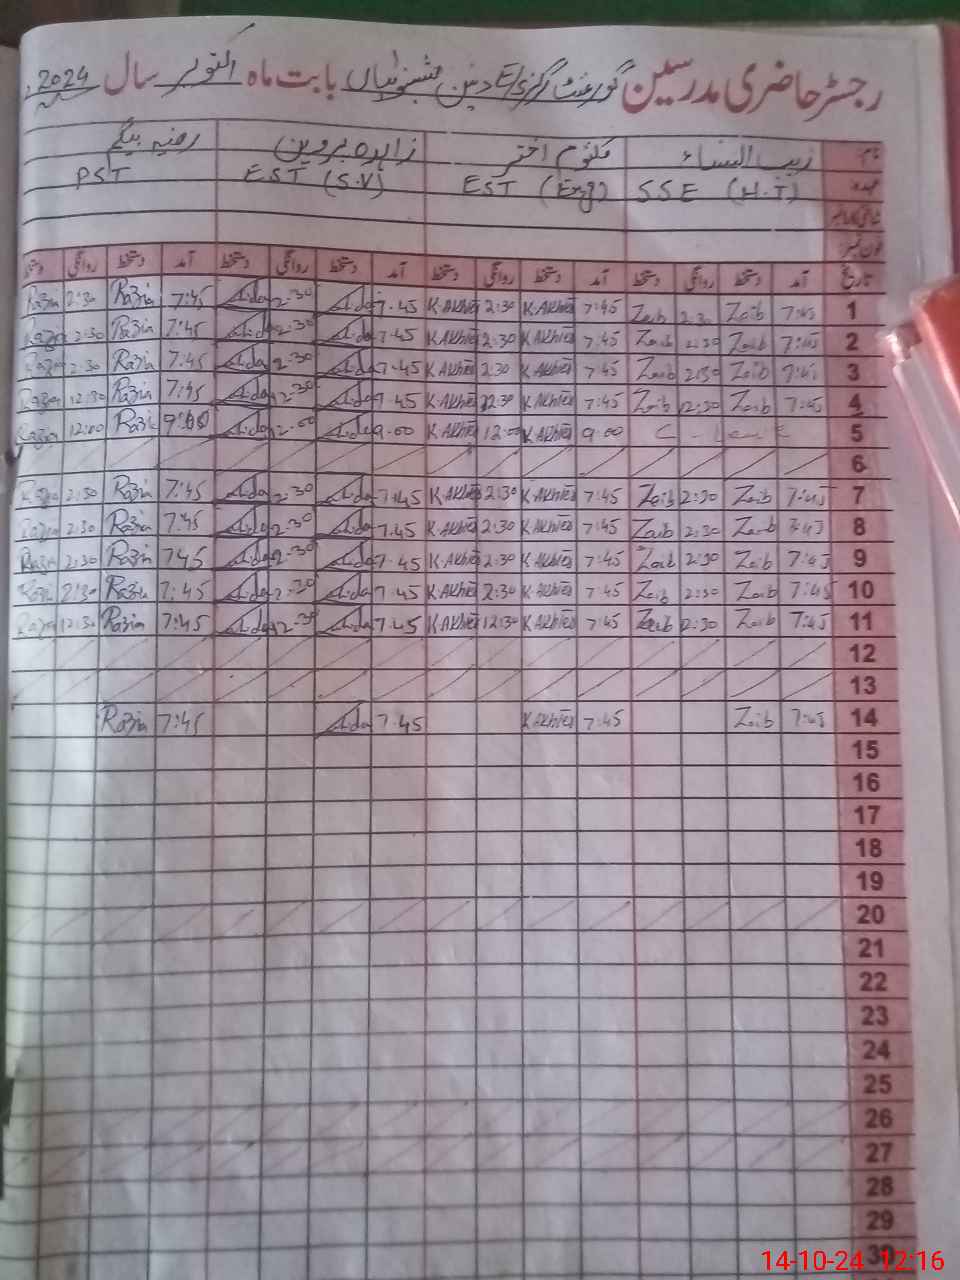 رجسٹر حاضری مدرسین گورنمنٹ گرلز بابت ماہ اکتوبر سال 2024
نام زیب النساء کلثوم اختر زاہدہ پروین رضیہ بیگم
عہدہ SSE (H.T) EST (Eng) EST (S.V) PST
فون نمبر
تاریخ آمد دستخط روانگی دستخط آمد دستخط روانگی دستخط آمد دستخط روانگی دستخط آمد دستخط روانگی دستخط
1 7:45 Zaib 2:30 Zaib 7:45 K.Akhter 2:30 K.Akhter 7.45 2:30 7:45 Razia 2:30 Razia
2 7:45 Zaib 2:30 Zaib 7:45 K.Akhter 2:30 K.Akhter 7.45 2:30 7:45 Razia 2:30 Razia
3 7:45 Zaib 2:30 Zaib 7:45 K.Akhter 2:30 K.Akhter 7.45 2:30 7:45 Razia 2:30 Razia
4 7:45 Zaib 12:30 Zaib 7:45 K.Akhter 12:30 K.Akhter 7.45 12:30 7:45 Razia 12:30 Razia
5 C-Leave 9:00 K.Akhter 12:00 K.Akhter 9.00 12:00 9:00 Razia 12:00 Razia
6
7 7:45 Zaib 2:30 Zaib 7:45 K.Akhter 2:30 K.Akhter 7.45 2:30 7:45 Razia 2:30 Razia
8 7:45 Zaib 2:30 Zaib 7:45 K.Akhter 2:30 K.Akhter 7.45 2:30 7:45 Razia 2:30 Razia
9 7:45 Zaib 2:30 Zaib 7:45 K.Akhter 2:30 K.Akhter 7.45 2:30 7:45 Razia 2:30 Razia
10 7:45 Zaib 2:30 Zaib 7:45 K.Akhter 2:30 K.Akhter 7.45 2:30 7:45 Razia 2:30 Razia
11 7:45 Zaib 12:30 Zaib 7:45 K.Akhter 12:30 K.Akhter 7.45 12:30 7:45 Razia 12:30 Razia
12
13
14 7:45 Zaib 7:45 K.Akhter 7.45 7:45 Razia
15
16
17
18
19
20
21
22
23
24
25
26
27
28
29
30
14-10-24 12:16